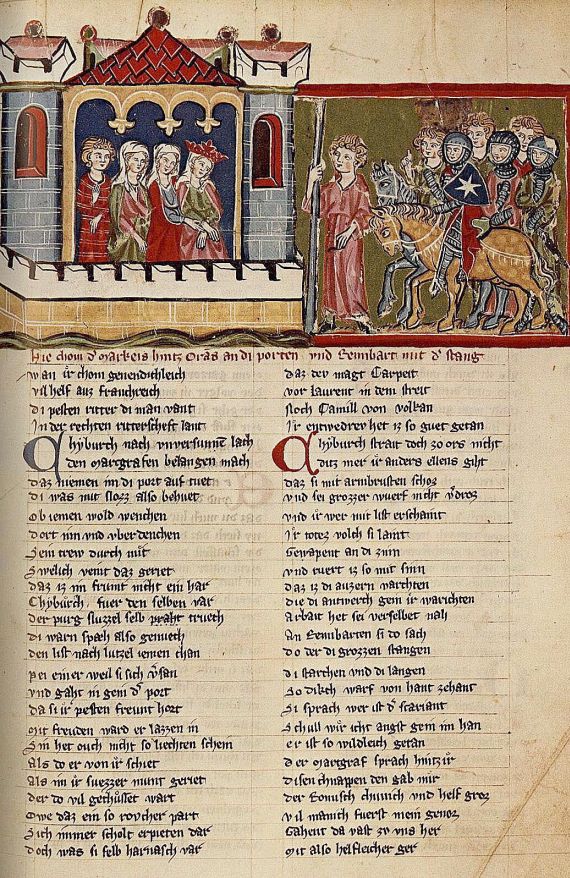 Hie chom d' markeis hintz Oras an di porten vnd Rennbart mit d' stang
wan ir chom genendichleich
vil helf auz franchreich
di pesten ritter di man vant
In der rechten ritterscheft lant
Chyburch nach vnversunnē lach
den margrafen belangen mach
daz niemen im di port auf tuet
di was mit slozz also behuet
Ob iemen wold wenchen
dort inn vnd vberdenchen
Sein trew durch mit
Swelich vemt daz geriet
daz iz im frumt nicht ein har
Chyburch, fuer den selben var
der purg sluzzel selb praht truech
di warn spæh also genuech
den list nach lutzel iemen chan
per einer weil si sich v'san
vnd gaht in gein d' port
da si ir pesten freunt hort
mit freuden ward er lazzen in
Sin het ouch nicht so liechten schein
Als do er von ir schiet
Als im ir suezzer munt geriet
der do vil gechusset wart
Owe daz ein so roucher part
Sich immer scholt erpieten dar
doch was si selb harnasch var
daz der magt Carpeit
vor laurent in dem streit
Noch Camill von volkan
Ir entwederer het iz so guet getan
Chyburch strait doch zo ors nicht
dutz mer ir anders ellens giht
daz si mit armbrusten schoz
vnd sei grozzer wuerf nicht v'droz
vnd ir wer mit list erschaint
Ir totez volch si laint
Gewapent an di zinn
vnd ruert iz so mit sinn
daz iz di auzern vorchten
die di antwerch gein ir worichten
Arbait het sei verselbet nah
An Rennbarten si do sach
do der di grozzen stangen
di starchen vnd di langen
So dikch warf von hant zehant
Si sprach wer ist d' scariant
Schull wir icht angst gein im han
er ist so wildleich getan
der margraf sprach hintz ir
disen chnappen den gab mir
der Romisch chunich vnd helf groz
vil manich fuerst mein genoz
Gahent da vast zv vns her
mit also helfleicher ger